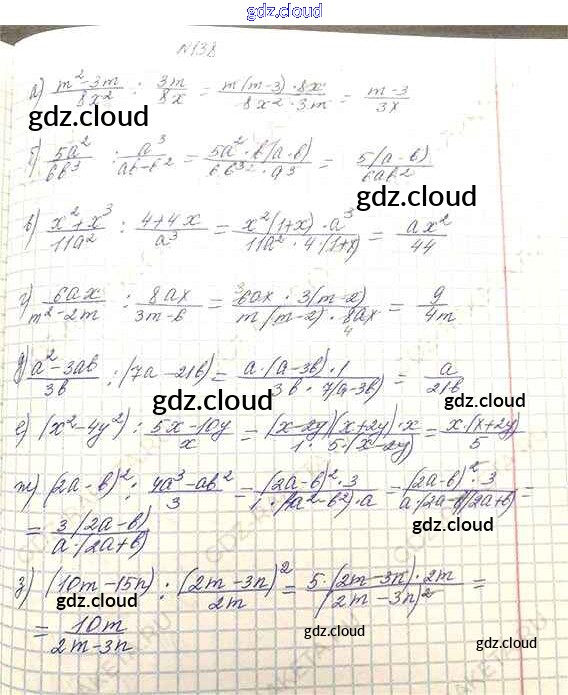 gdz.cloud
№138
а) (m² - 3m)/(8x²) : 3m/(8x) = (m(m-3)·8x)/(8x²·3m) = (m-3)/(3x)
gdz.cloud gdz.cloud
б) 5a²/(6b³) : a³/(ab-b²) = (5a²·b(a-b))/(6b³·a³) = 5(a-b)/(6ab²)
gdz.cloud
в) (x²+x³)/(11a²) : (4+4x)/a³ = (x²(1+x)·a³)/(11a²·4(1+x)) = ax²/44
gdz.cloud
г) 6ax/(m²-2m) : 8ax/(3m-6) = (6ax·3(m-2))/(m(m-2)·8ax) = 9/(4m)
3 4
д) (a²-3ab)/(3b) : (7a-21b) = (a·(a-3b)·1)/(3b·7(a-3b)) = a/(21b)
gdz.cloud gdz.cloud
е) (x²-4y²) : (5x-10y)/x = ((x-2y)(x+2y)·x)/(1·5·(x-2y)) = x·(x+2y)/5
ж) (2a-b)² : (4a³-ab²)/3 = ((2a-b)²·3)/(1·(4a²-b²)·a) = ((2a-b)²·3)/(a·(2a-b)(2a+b)) =
= 3(2a-b)/(a·(2a+b))
gdz.cloud gdz.cloud
з) (10m-15n) : ((2m-3n)/(2m))² = (5·(2m-3n)·2m)/(2m-3n)² =
gdz.cloud gdz.cloud
= 10m/(2m-3n)
gdz.cloud gdz.cloud